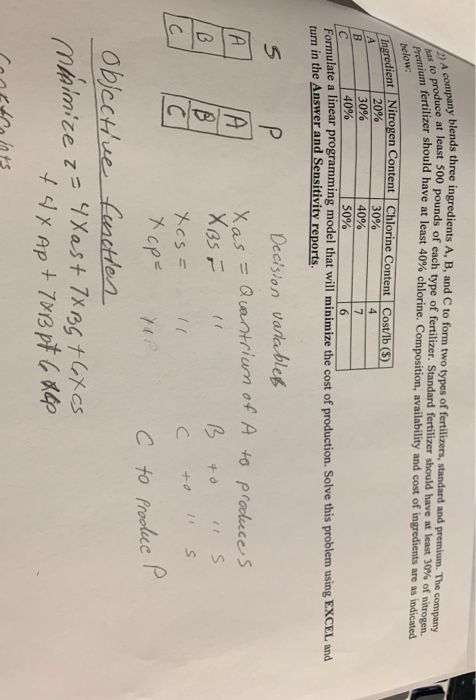 2) A company blends three ingredients A, B, and C to form two types of fertilizers, standard and premium. The company
has to produce at least 500 pounds of each type of fertilizer. Standard fertilizer should have at least 30% of nitrogen.
Premium fertilizer should have at least 40% chlorine. Composition, availability and cost of ingredients are as indicated
below:
Ingredient Nitrogen Content Chlorine Content Cost/lb ($)
A 20% 30% 4
B 30% 40% 7
C 40% 50% 6
Formulate a linear programming model that will minimize the cost of production. Solve this problem using EXCEL and
turn in the Answer and Sensitivity reports.
S P
A A
B B
C C
Decision variables
Xas = Quantrium of A to produce S
XBS = " B to " S
Xcs = " C to " S
Xcp = C to produce P
Objective function
Minimize z = 4Xas + 7XBS + 6Xcs
+ 4XAp + 7XBp + 6Xcp
Constraints